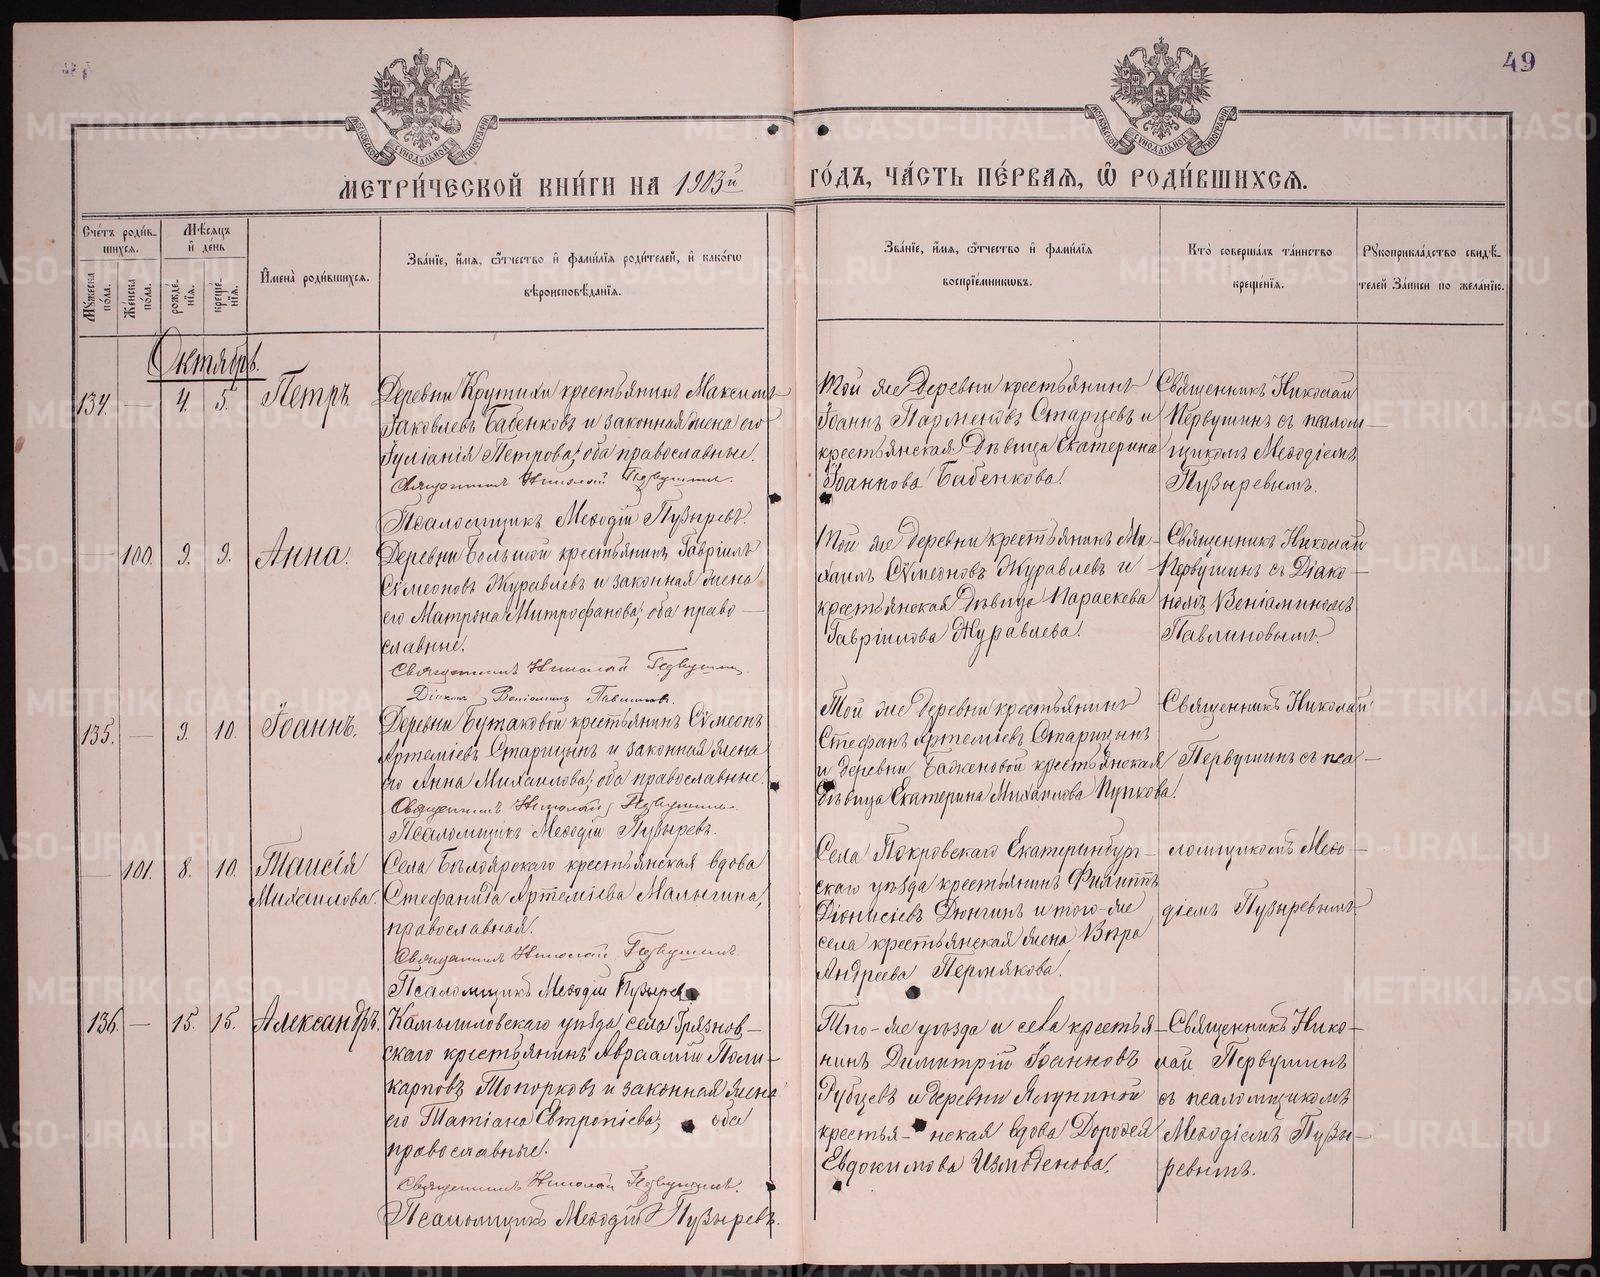 49
МОСКОВСКОЙ СѴНОДАЛЬНОЙ ТИПОГРАФІИ
МОСКОВСКОЙ СѴНОДАЛЬНОЙ ТИПОГРАФІИ
МЕТРИ́ЧЕСКОЙ КНИ́ГИ НА 1903й ГО́ДЪ, ЧА́СТЬ ПЕ́РВАѦ, Ѡ҆ РОДИ́ВШИХСѦ.
Сче́тъ роди́в-
шихсѧ.
Мꙋжеска по́ла.
Же́нска по́ла.
Мѣ́сѧцъ
и҆ де́нь
рожде́-
нїѧ.
креще́-
нїѧ.
И҆мена̀ роди́вшихсѧ.
Зва́нїе, и҆́мѧ, ѻ҆́тчество и҆ фами́лїѧ роди́телей, и҆ како́гѡ
вѣроисповѣ́данїѧ.
Зва́нїе, и҆́мѧ, ѻ҆́тчество и҆ фами́лїѧ
воспрїе́мникѡвъ.
Кто̀ соверша́лъ та́инство
креще́нїѧ.
Рꙋкоприкла́дство свидѣ́-
телей за́писи по жела́нїю.
Октябрь.
134. — 4. 5. Петръ.
Деревни Крутихи крестьянинъ Максимъ
Іаковлевъ Бабенковъ и законная жена его
Іуліанія Петрова; оба православные.
Священникъ Николай Первушинъ.
Псаломщикъ Меѳодій Пузыревъ.
Той же деревни крестьянинъ
Іоаннъ Парменовъ Старцевъ и
крестьянская дѣвица Екатерина
Іоаннова Бабенкова.
Священникъ Николай
Первушинъ съ псалом—
щикомъ Меѳодіемъ
Пузыревымъ.
— 100. 9. 9. Анна.
Деревни Большой крестьянинъ Гавріилъ
Сѵмеоновъ Журавлевъ и законная жена
его Матрона Митрофанова; оба право—
славные.
Священникъ Николай Первушинъ
Діаконъ Веніаминъ Павлиновъ.
Той же деревни крестьянинъ Ми-
хаилъ Сѵмеоновъ Журавлевъ и
крестьянская дѣвица Параскева
Гавріилова Журавлева.
Священникъ Николай
Первушинъ съ Діако—
номъ Веніаминомъ
Павлиновымъ.
135. — 9. 10. Іоаннъ.
Деревни Бутаковой крестьянинъ Сѵмеонъ
Артеміевъ Старицынъ и законная жена
его Анна Михаилова; оба православные
Священникъ Николай Первушинъ.
Псаломщикъ Меѳодій Пузыревъ.
Той же деревни крестьянинъ
Стефанъ Артеміевъ Старицынъ
и деревни Баженовой крестьянская
дѣвица Екатерина Михаилова Пупкова.
Священникъ Николай
Первушинъ съ пса—
— 101. 8. 10. Таисія
Михаилова.
Села Бѣлоярскаго крестьянская вдова
Стефанида Артеміева Малыгина,
православная.
Священникъ Николай Первушинъ
Псаломщикъ Меѳодій Пузырев
Села Покровскаго Екатеринбург-
скаго уѣзда крестьянинъ Филиппъ
Діонисіевъ Дюнгинъ и того-же
села крестьянская жена Вѣра
Андреева Пермякова.
ломщикомъ Меѳо—
діемъ Пузыревымъ.
136. — 15. 15. Александръ.
Камышловскаго уѣзда, села Грязнов—
скаго крестьянинъ Авраамій Поли—
карповъ Топорковъ и законная жена
его Татіана Евтропіева; оба
православные.
Священникъ Николай Первушинъ.
Псаломщикъ Меѳодій Пузыревъ.
Того-же уѣзда и села крестья—
нинъ Димитрій Іоанновъ
Рубцевъ и деревни Ялуниной
крестья- нская вдова Дороѳея
Евдокимова Измоденова.
Священникъ Нико—
лай Первушинъ
съ псаломщикомъ
Меѳодіемъ Пузы—
ревымъ.
METRIKI.GASO-URAL.RU